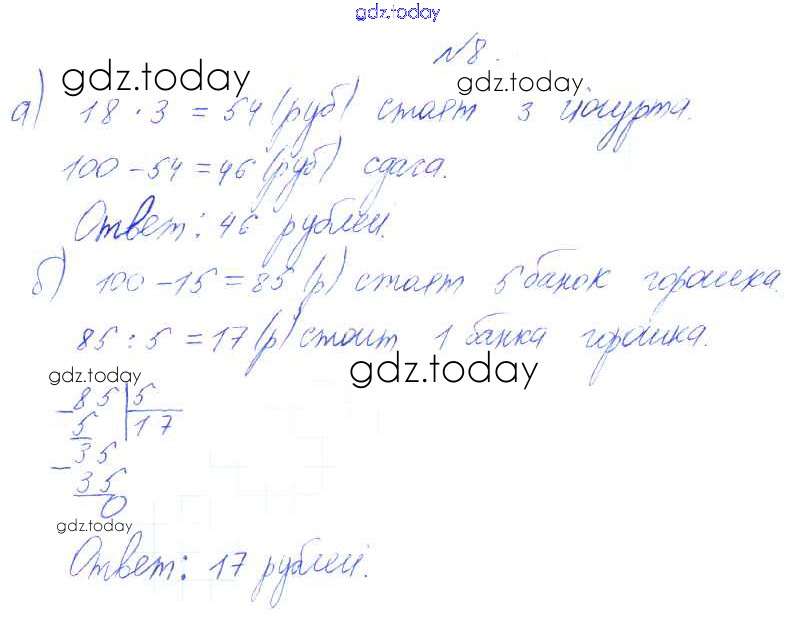 gdz.today
№8.
gdz.today gdz.today
а) 18 · 3 = 54 (руб) стоят 3 йогурта.
100 - 54 = 46 (руб) сдача.
Ответ: 46 рублей.
б) 100 - 15 = 85 (р) стоят 5 банок горошка.
85 : 5 = 17 (р) стоит 1 банка горошка.
gdz.today gdz.today
- 85 | 5
5 17
- 35
35
0
gdz.today
Ответ: 17 рублей.